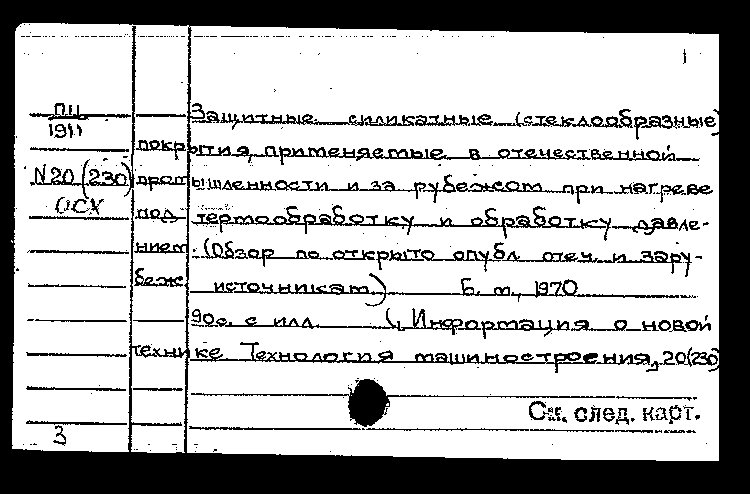 1
ПЦ Защитные силикатные (стеклообразные)
1911
покрытия, применяемые в отечественной
N20 (230) промышленности и за рубежом при нагреве
ОСХ под термообработку и обработку давле-
нием. (Обзор по открыто опубл. отеч. и зару-
беж. источникам) Б. м., 1970
90с. с илл. (Информация о новой
технике. Технология машиностроения, 20(230)
См. след. карт.
3